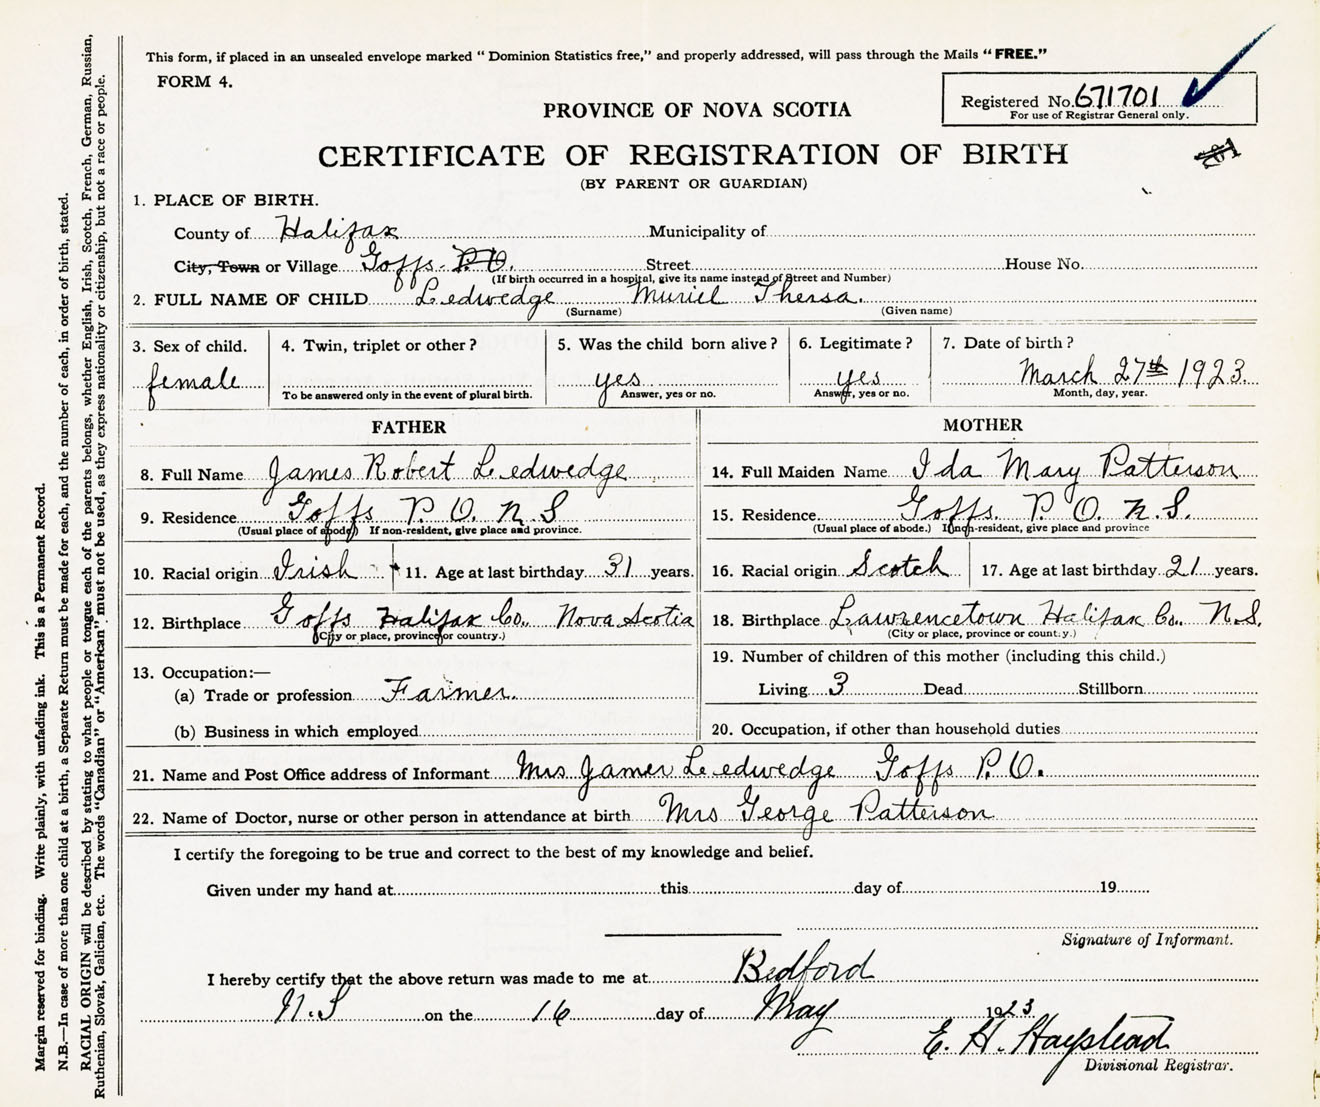 This form, if placed in an unsealed envelope marked "Dominion Statistics free," and properly addressed, will pass through the Mails "FREE."
FORM 4.
Registered No. 671701
For use of Registrar General only.
PROVINCE OF NOVA SCOTIA
CERTIFICATE OF REGISTRATION OF BIRTH
(BY PARENT OR GUARDIAN)
1. PLACE OF BIRTH.
County of Halifax Municipality of
City, Town or Village Goffs. P.O. Street House No.
(If birth occurred in a hospital, give its name instead of Street and Number)
2. FULL NAME OF CHILD Ledwedge Muriel Thersa.
(Surname) (Given name)
3. Sex of child. 4. Twin, triplet or other? 5. Was the child born alive? 6. Legitimate? 7. Date of birth?
female yes yes March 27th 1923.
To be answered only in the event of plural birth. Answer, yes or no. Answer, yes or no. Month, day, year.
FATHER
8. Full Name James Robert Ledwedge
9. Residence Goffs P. O. N.S
(Usual place of abode) If non-resident, give place and province.
10. Racial origin Irish 11. Age at last birthday 31 years.
12. Birthplace Goffs Halifax Co., Nova Scotia
(City or place, province or country.)
13. Occupation:—
(a) Trade or profession Farmer.
(b) Business in which employed
MOTHER
14. Full Maiden Name Ida Mary Patterson
15. Residence Goffs. P. O. N.S.
(Usual place of abode.) If non-resident, give place and province
16. Racial origin Scotch 17. Age at last birthday 21 years.
18. Birthplace Lawrencetown Halifax Co., N.S.
(City or place, province or country.)
19. Number of children of this mother (including this child.)
Living 3 Dead Stillborn
20. Occupation, if other than household duties
21. Name and Post Office address of Informant Mrs James Ledwedge Goffs P.O.
22. Name of Doctor, nurse or other person in attendance at birth Mrs George Patterson
I certify the foregoing to be true and correct to the best of my knowledge and belief.
Given under my hand at this day of 19
Signature of Informant.
I hereby certify that the above return was made to me at Bedford
N.S on the 16 day of May 1923
E. H. Haystead
Divisional Registrar.
Margin reserved for binding. Write plainly, with unfading ink. This is a Permanent Record.
N.B.—In case of more than one child at a birth, a Separate Return must be made for each, and the number of each, in order of birth, stated.
RACIAL ORIGIN will be described by stating to what people or tongue each of the parents belongs, whether English, Irish, Scotch, French, German, Russian,
Ruthenian, Slovak, Galician, etc. The words "Canadian" or "American" must not be used, as they express nationality or citizenship, but not a race or people.